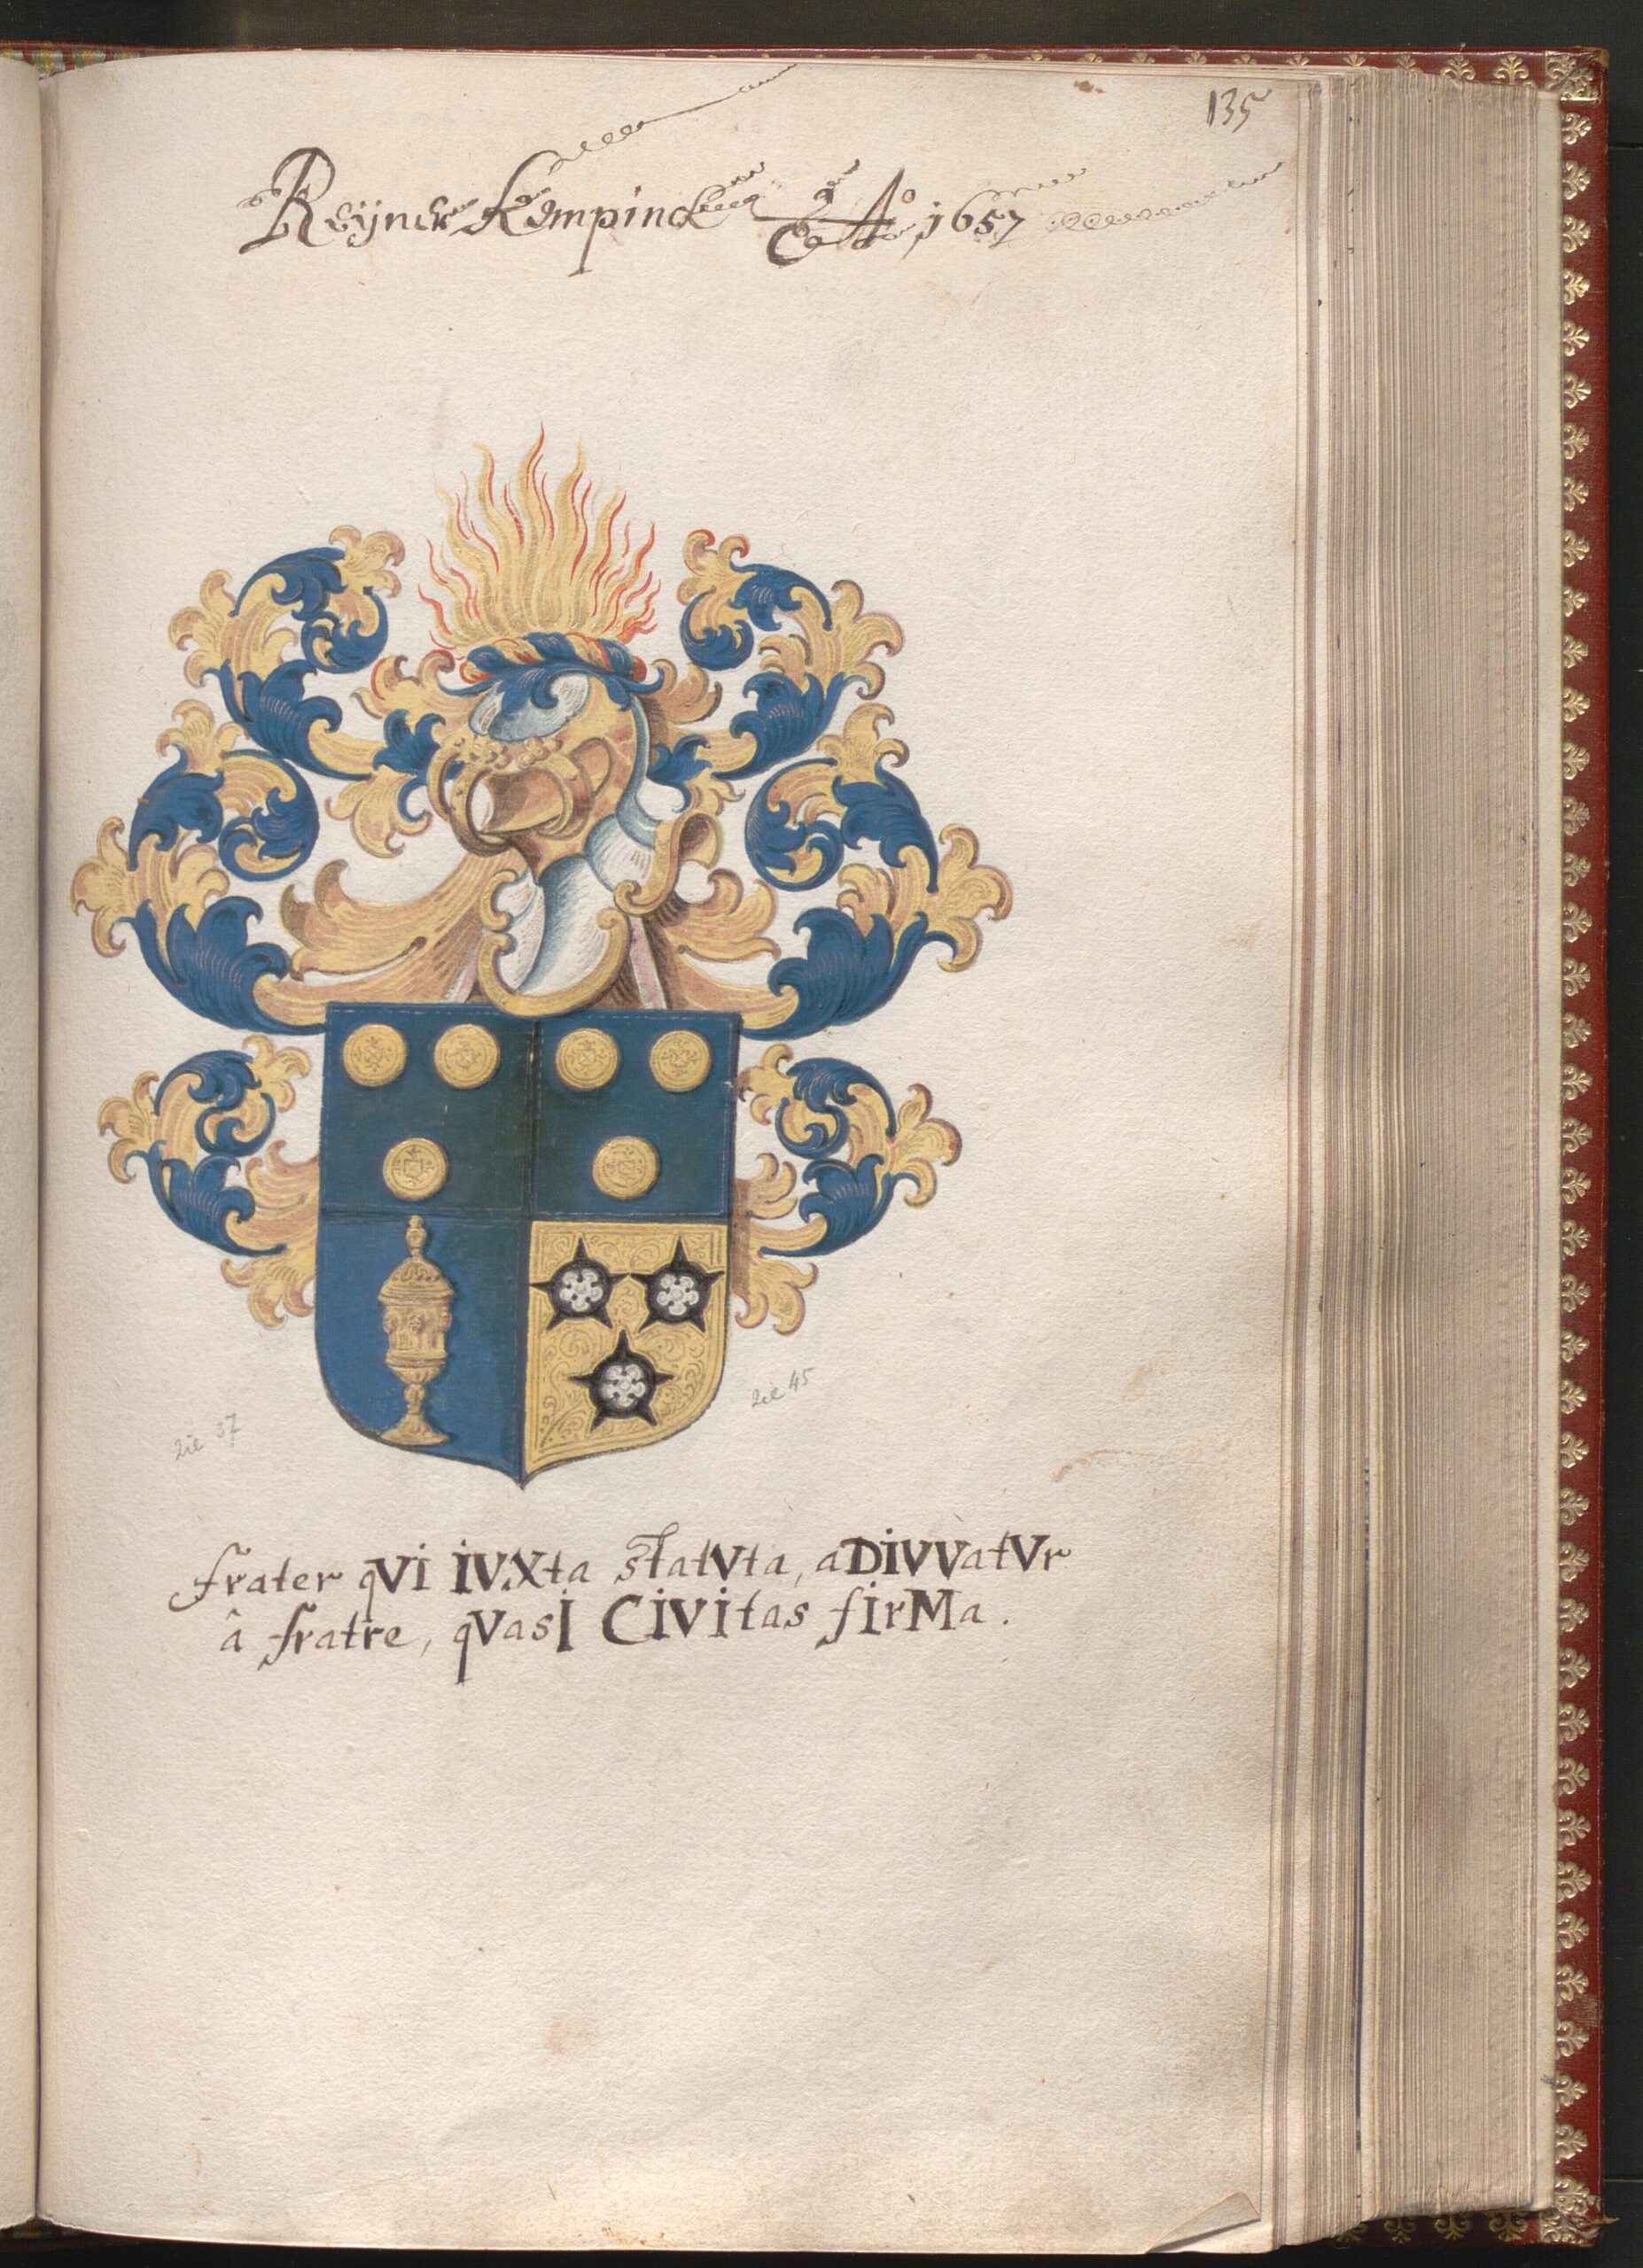 135
Reijner Kempinck Aº 1657
2ie 45
2ie 37
frater qVI IVXta statVta, aDIVVatVr
â fratre, qVasI CIVItas fIrMa.